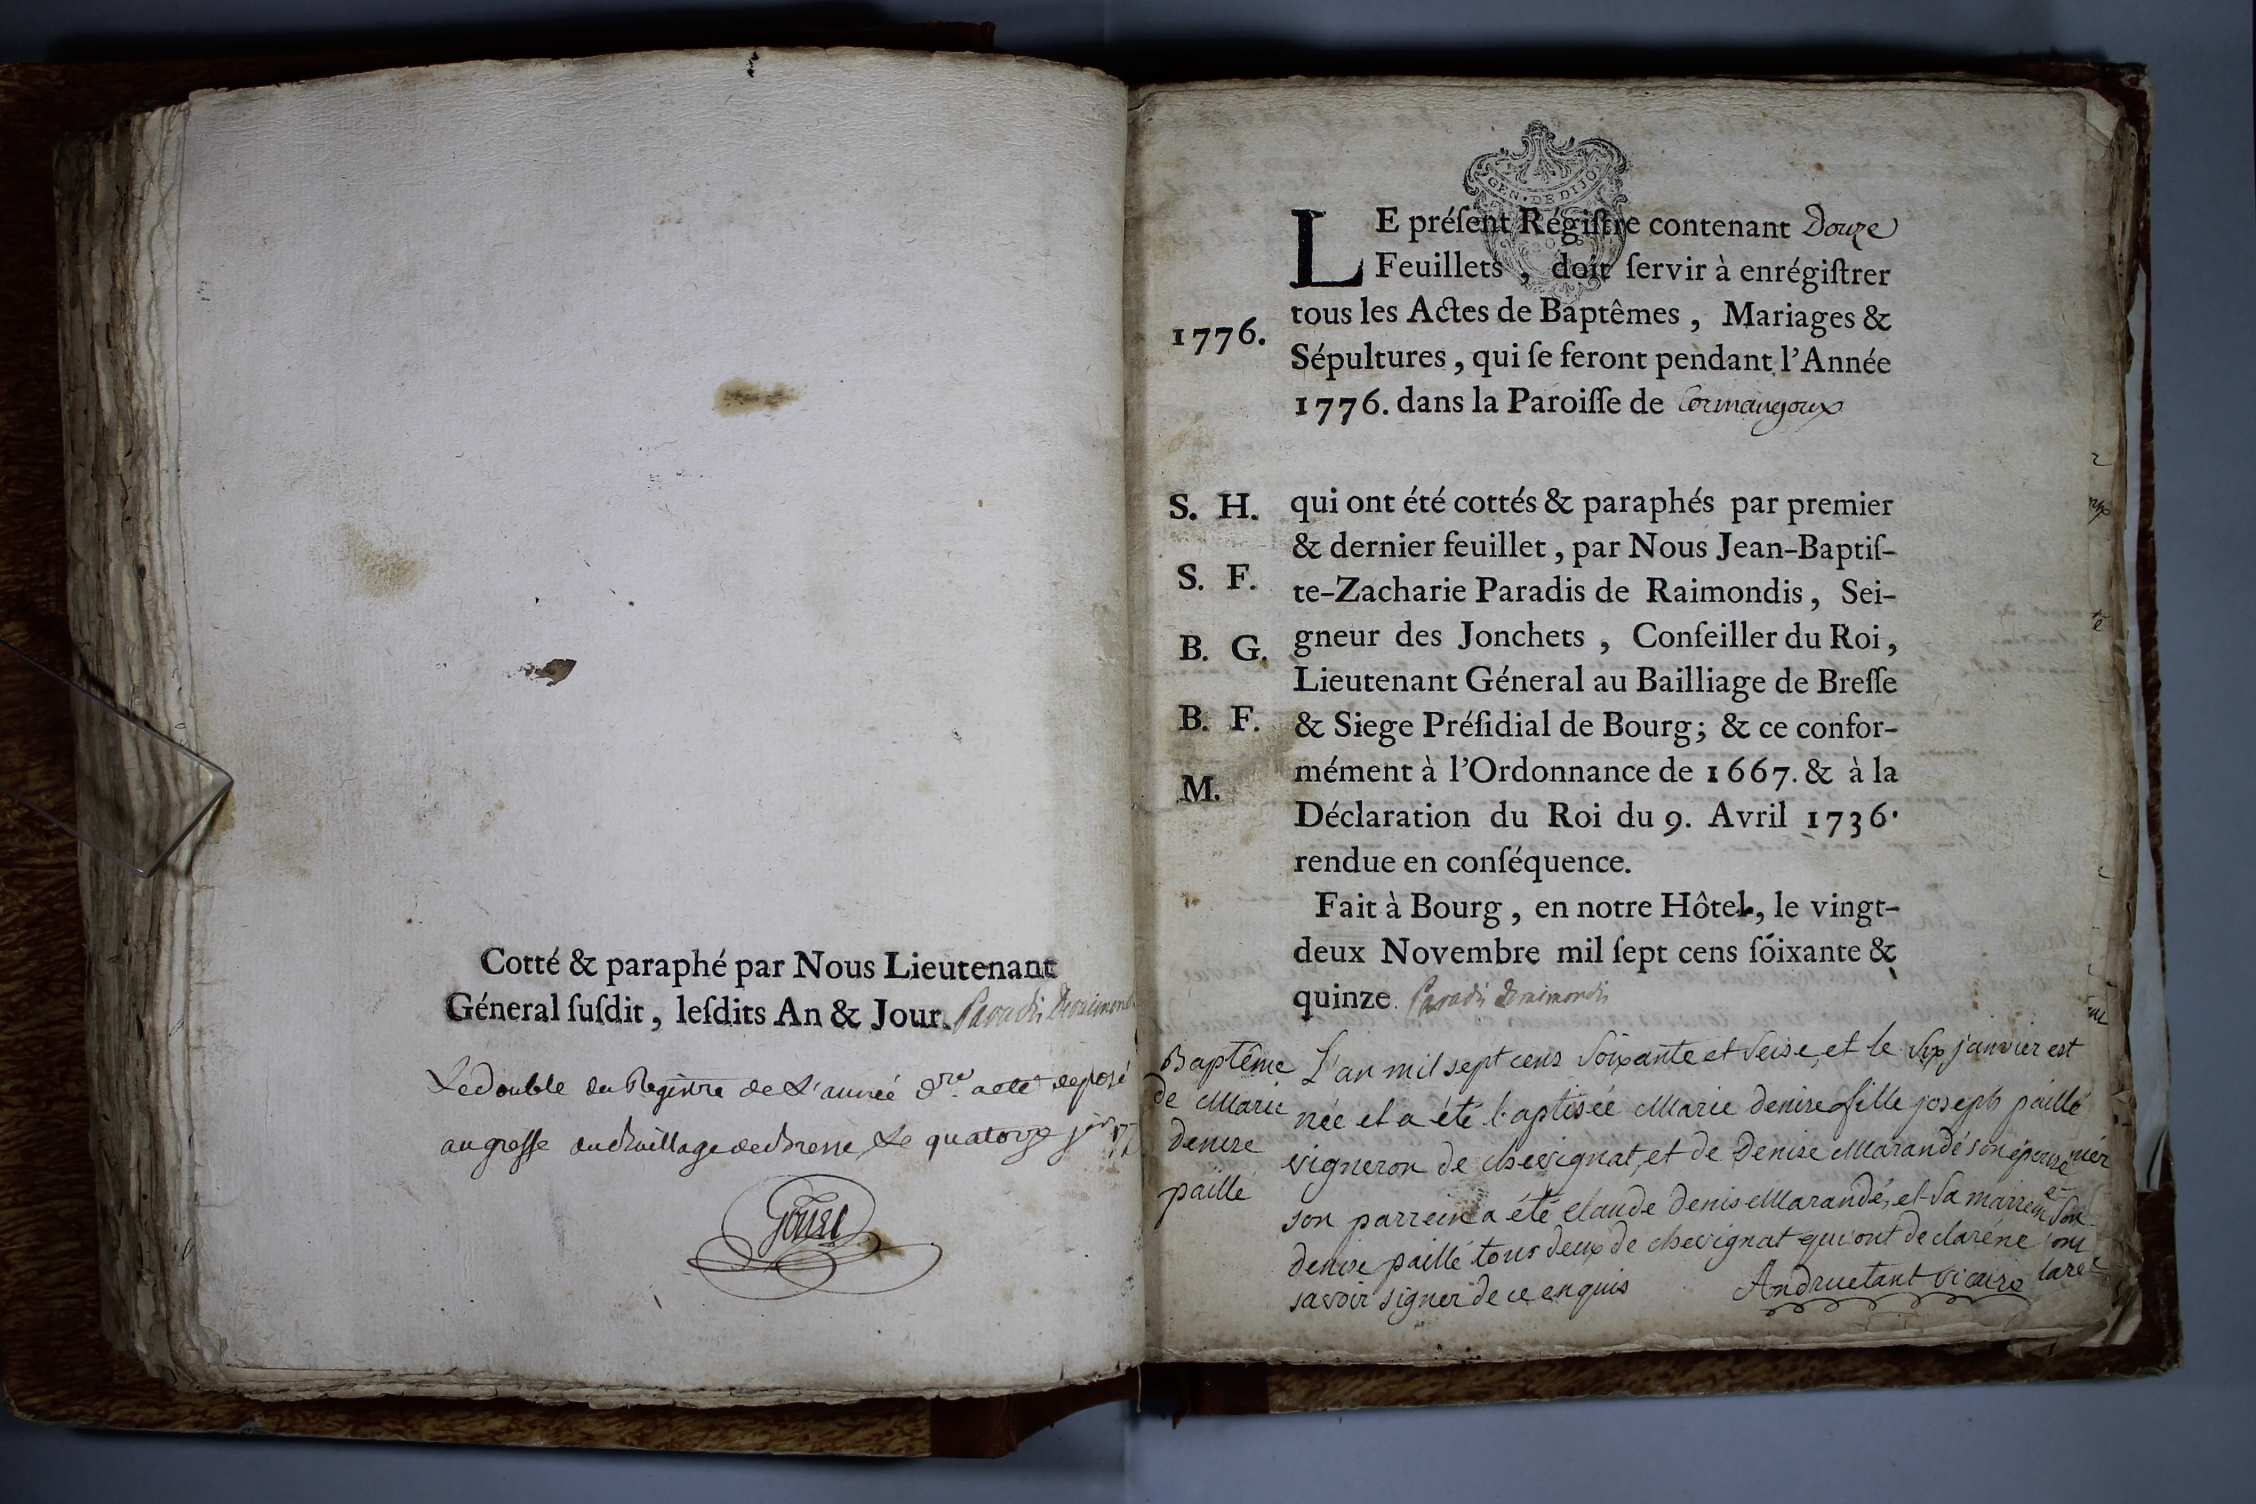 Cotté & paraphé par Nous Lieutenant
Géneral ſuſdit, leſdits An & Jour. Paradis Deraimondis
Le double du Registre de L'année dre. a eté deposé
au greffe du Bailliage de Bresse Le quatorze
GEN. DE DIJON
LE préſent Régiſtre contenant Douze
Feuillets, doit ſervir à enrégiſtrer
tous les Actes de Baptêmes, Mariages &
1776.
Sépultures, qui ſe feront pendant l'Année
1776. dans la Paroiſſe de Cormangoux
S. H.
qui ont été cottés & paraphés par premier
& dernier feuillet, par Nous Jean-Baptiſ-
S. F.
te-Zacharie Paradis de Raimondis, Sei-
B. G.
gneur des Jonchets, Conſeiller du Roi,
Lieutenant Géneral au Bailliage de Breſſe
B. F.
& Siege Préſidial de Bourg; & ce confor-
M.
mément à l'Ordonnance de 1667. & à la
Déclaration du Roi du 9. Avril 1736.
rendue en conſéquence.
Fait à Bourg, en notre Hôtel, le vingt-
deux Novembre mil ſept cens ſoixante &
quinze. Paradis Deraimondis
Baptême
de Marie
denise
paillé
L'an mil sept cens soixante et seise, et le six janvier est
née et a été baptisée Marie denise fille joseph paillé
vigneron de chevignat, et de Denise Marandé son épouse
son parrein a été claude denis Marandé, et sa marreine
denise paillé tous deux de chevignat qui ont declaré ne
savoir signer de ce enquis Andruetant vicaire